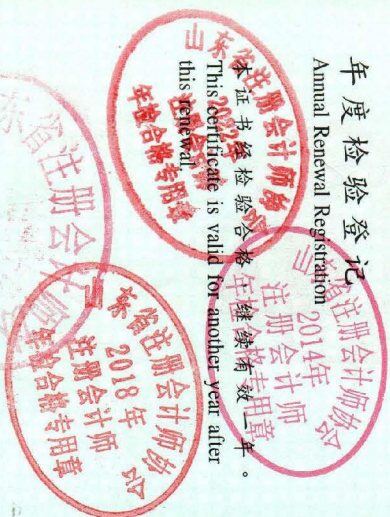 年度检验登记
Annual Renewal Registration
本证书经检验合格，继续有效一年。
This certificate is valid for another year after
this renewal.
山东省注册会计师协会
2014年
注册会计师
年检合格专用章
山东省注册会计师协会
注册会计师
年检合格专用章
山东省注册会计师协会
2018年
注册会计师
年检合格专用章
东省注册会计师